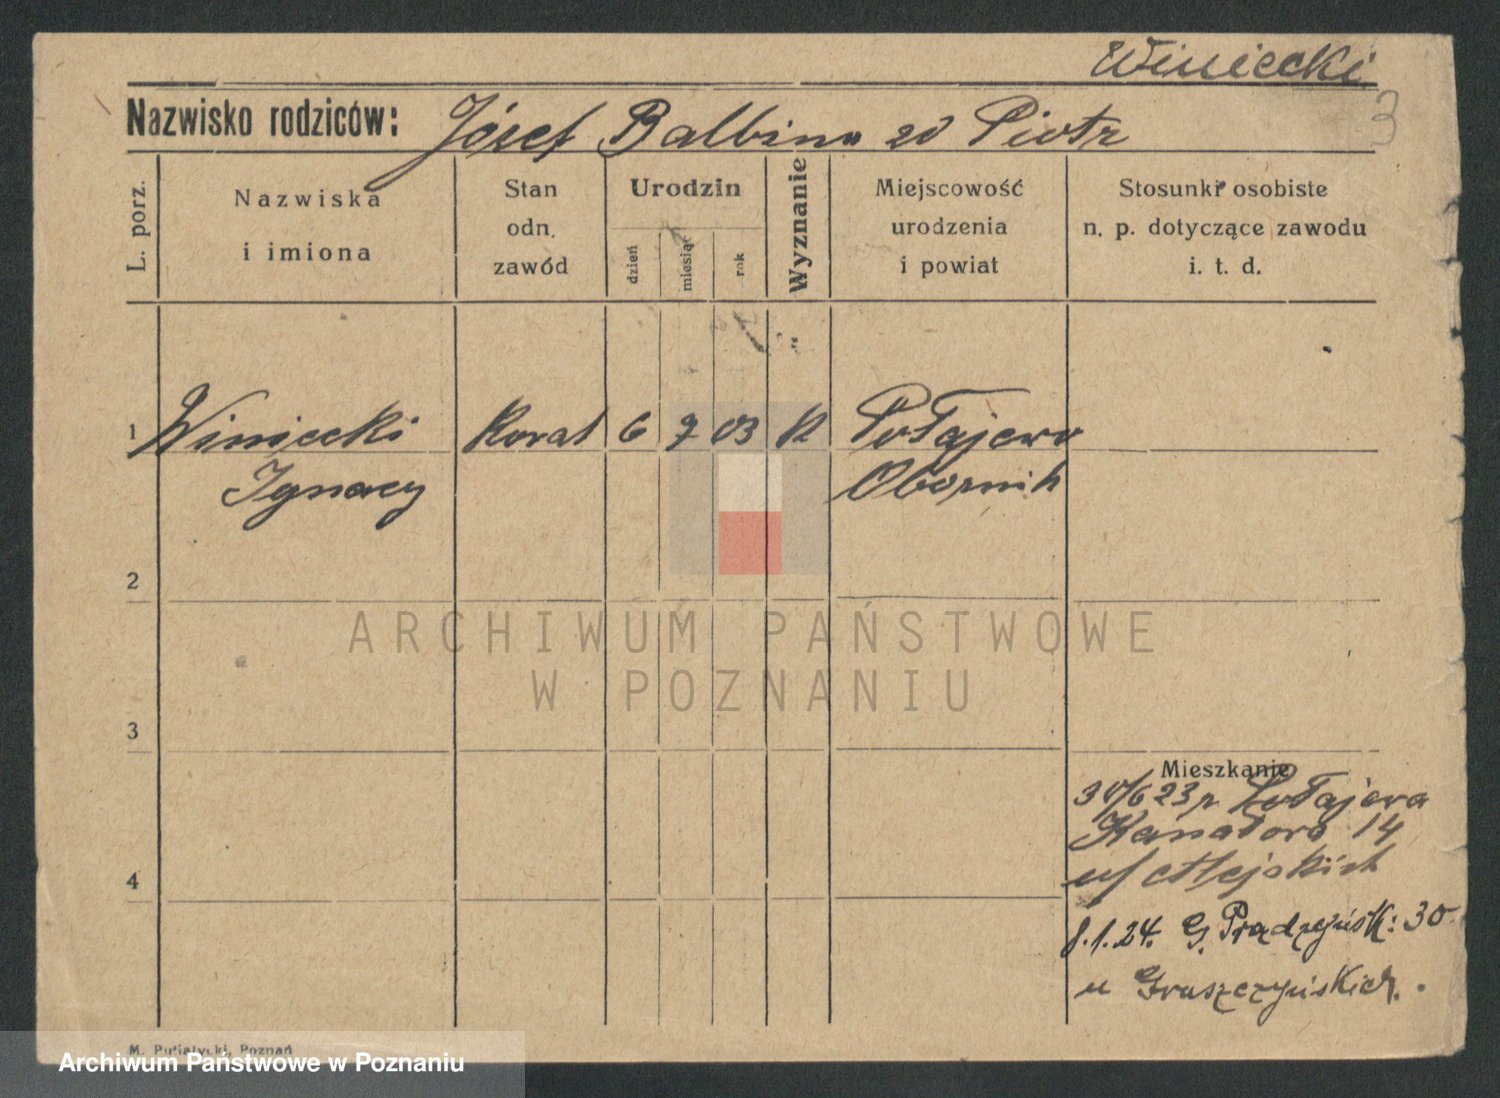 Winiecki
3
Nazwisko rodziców: Józef Balbina zd Piotr
L. porz.
Nazwiska i imiona
Stan odn. zawód
Urodzin
dzień
miesiąc
rok
Wyznanie
Miejscowość urodzenia i powiat
Stosunki osobiste n. p. dotyczące zawodu i. t. d.
1 Winiecki Kowal 6 7 03 K Połajewo
Ignacy Obornik
2
ARCHIWUM PAŃSTWOWE
W POZNANIU
3
Mieszkanie
30/6 23 z Połajewa
Kanałowa 14
4
8.1.24. G. Prądzyńsk: 30
u Gruszczyńskich.
M. Putiatycki, Poznań
Archiwum Państwowe w Poznaniu